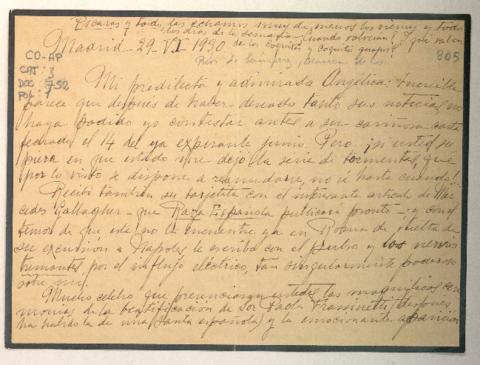 Escaras y todo, las echamos muy de menos los viernes y todos
los dias de la semana. ¿Cuándo volverán? Y qué
Madrid - 29-VI-1930
de los Coquito y Coquita guapis?
Blanca de los
CO-AP
CAT: 3
DOC: 552
POL: 1
805
Mi predilecta y admirada Angélica: Increible
parece que despues de haber deseado tanto sus noticias, no
haya podido yo contestar antes a su cariñosa carta
fechada el 14 del ya expirante junio. Pero ¡si usted su
piera en que estado me dejó la serie de tormentas, que
por lo visto se dispone a reanudarse, no sé hasta cuando!
Recibí también su tarjetita con el interesante articulo de Mer
cedes Gallagher - que Raza Española publicará pronto - y con
temor de que este no la encuentre ya en Roma de vuelta de
su excursión a Napoles le escribo con el pulso y los nervios
tremantes por el influjo eléctrico, tan singularmente poderoso
sobre mi.
Mucho celebro que presenciaran ustedes las magnificas cere
monias de la beatificación de Sor Paola Frassinetti, (despues
ha habido la de una Santa española) y la emocionante aparición